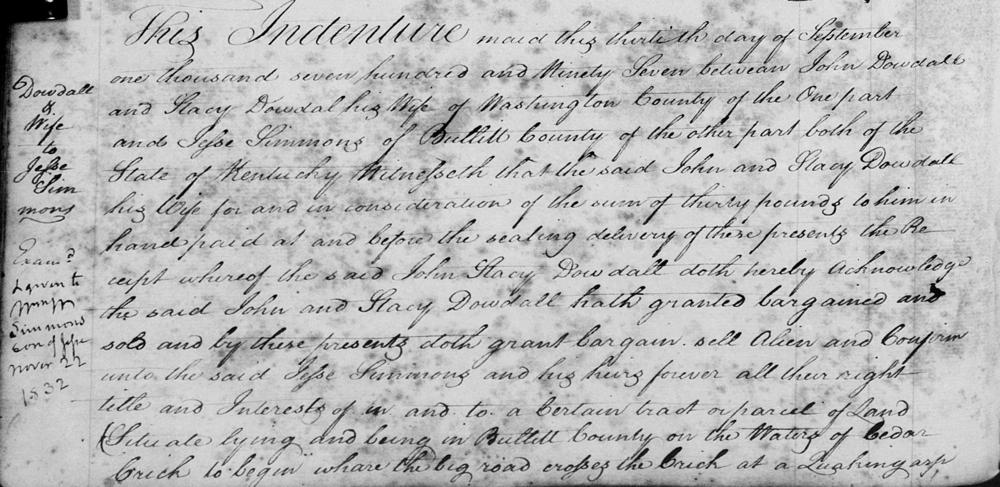 This Indenture maid this thirtith day of September
one thousand seven hundred and Ninety Seven betwean John Dowdall
and Stacy Dowdal his Wife of Washington County of the One part
and Jesse Simmons of Bullitt County of the other part both of the
State of Kentucky Witnesseth that the said John and Stacy Dowdall
his Wife for and in consideration of the sum of thirty pounds to him in
hand paid at and before the sealing delivery of these presents the Re
ceipt whereof the said John Stacy Dowdall doth hereby Acknowledge
the said John and Stacy Dowdall hath granted bargained and
sold and by these presents doth grant bargain sell Alien and Confirm
unto the said Jesse Simmons and his heirs forever all their right
title and Interests of in and to a Certain tract or parcel of Land
Situate lying and being in Bullitt County on the Waters of Cedar
Crich to begin whare the big road crosses the Crich at a Quaking asp
Dowdall
&
Wife
to
Jesse
Sim
mons
Exam.d
& given to
Simmons
son of Jesse
Novr 22
1832